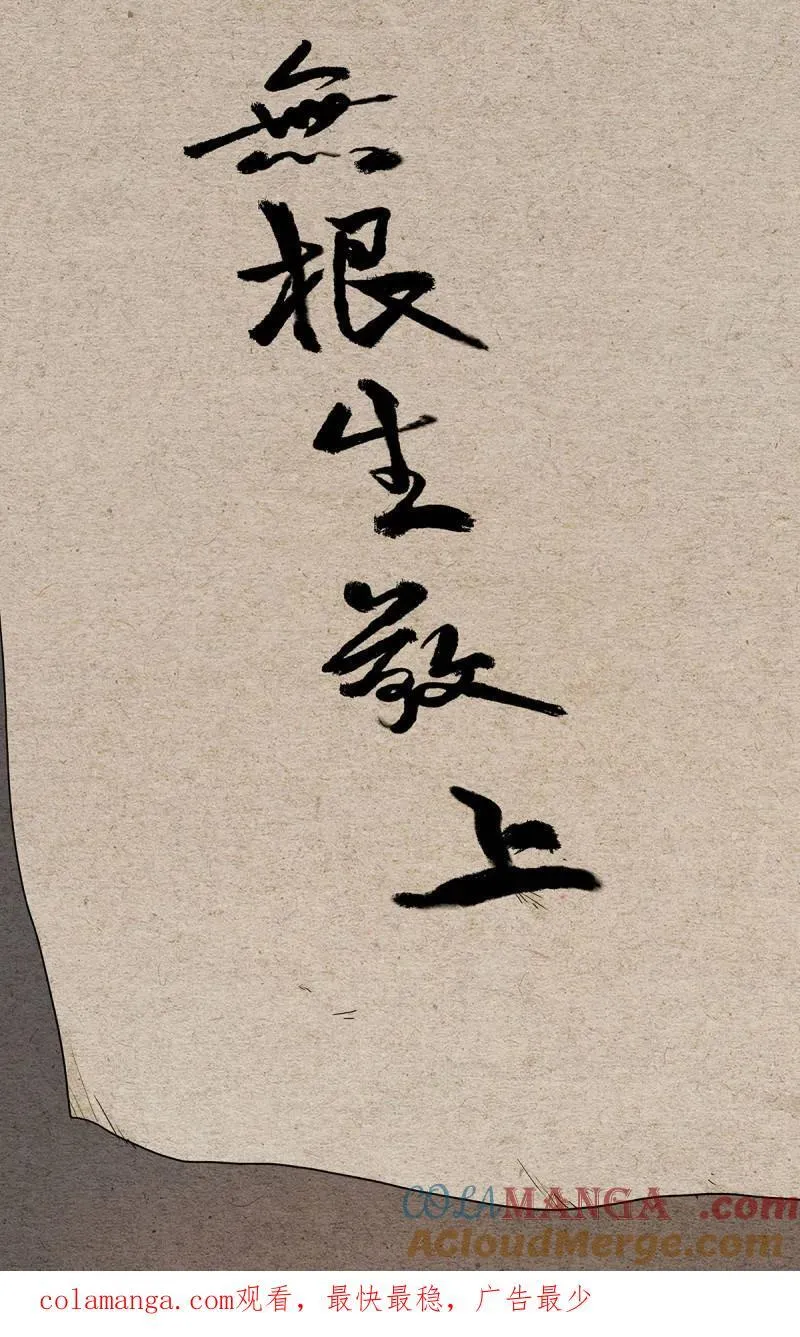 無根生敬上
COLAMANGA.com
ACloudMerge.com
colamanga.com观看，最快最稳，广告最少